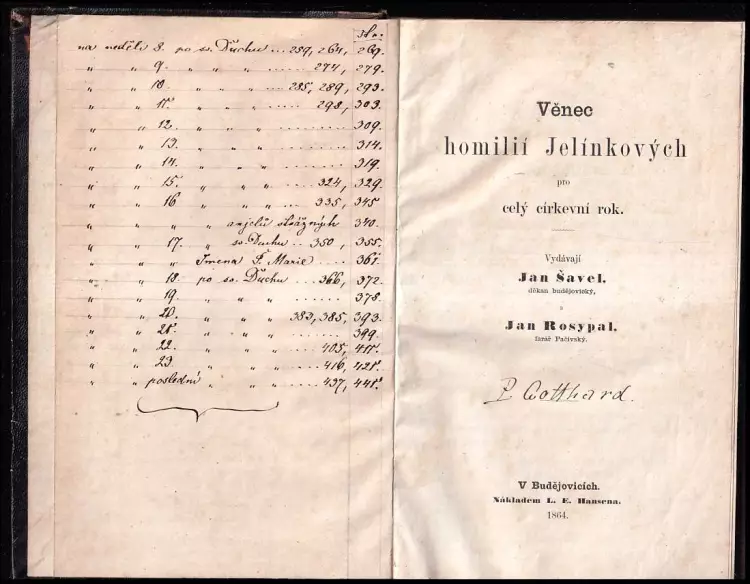 Str.
na neděli 8. po sv. Duchu ... 259, 264, 269.
" " 9. " " " ...... 274, 279.
" " 10. " " " .. 285, 289, 293.
" " 11. " " " ...... 298, 303.
" " 12. " " " ......... 309.
" " 13. " " " ......... 314.
" " 14. " " " ......... 319.
" " 15. " " " ..... 324, 329.
" " 16 " " " ... 335, 345
" " " " andělů strážných 340.
" " 17. " sv. Duchu .. 350, 355.
" " " Jména P. Marie .... 361.
" " 18. po sv. Duchu .... 366, 372.
" " 19. " " " ......... 378.
" " 20. " " " 383, 385, 393.
" " 21. " " " ......... 399.
" " 22. " " " ..... 405, 411.
" " 23. " " " ..... 416, 421.
" " poslední " " " .... 437, 441.
Věnec
homilií Jelínkových
pro
celý církevní rok.
Vydávají
Jan Šavel,
děkan budějovický,
a
Jan Rosypal,
farář Pačivský.
P. Gotthard.
V Budějovicích.
Nákladem L. E. Hansena.
1864.